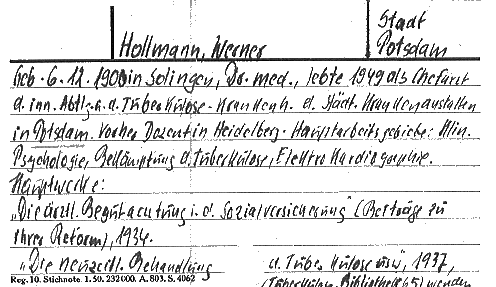 Hollmann, Werner
Stadt
Potsdam
Geb. 6.12.1900 in Solingen, Dr. med., lebte 1949 als Chefarzt
d. inn. Abtlg. u. d. Tuberkulose-Krankenh. d. Städt. Krankenanstalten
in Potsdam. Vorher Dozent in Heidelberg. Hauptarbeitsgebiete: Klin.
Psychologie, Bekämpfung d. Tuberkulose, Elektrokardiographie.
Hauptwerke:
„Die ärztl. Begutachtung i. d. Sozialversicherung" (Beiträge zu
ihrer Reform), 1934.
„Die neuzeitl. Behandlung d. Tuberkulose usw", 1937,
Reg. 10. Stichnote. 1. 50. 232000. A. 803. S. 4062
(Tuberkulose-Bibliothek 65) wenden